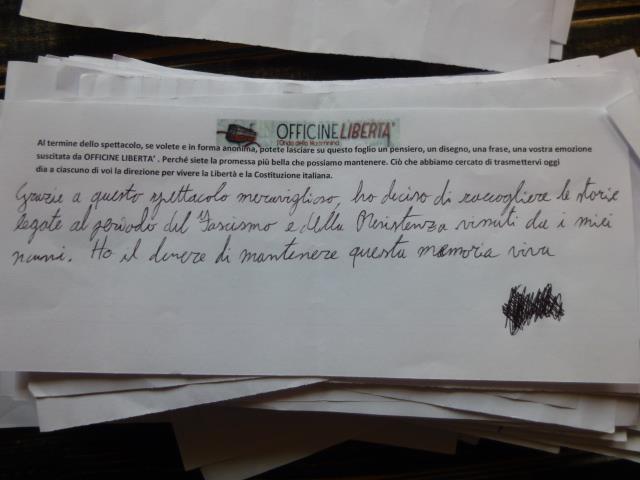 OFFICINE LIBERTA'
l'Onda della Madonnina
Al termine dello spettacolo, se volete e in forma anonima, potete lasciare su questo foglio un pensiero, un disegno, una frase, una vostra emozione
suscitata da OFFICINE LIBERTA' . Perché siete la promessa più bella che possiamo mantenere. Ciò che abbiamo cercato di trasmettervi oggi
dia a ciascuno di voi la direzione per vivere la Libertà e la Costituzione italiana.
Grazie a questo spettacolo meraviglioso, ho deciso di raccogliere le storie
legate al periodo del Fascismo e della Resistenza vissuti da i miei
nonni. Ho il dovere di mantenere questa memoria viva